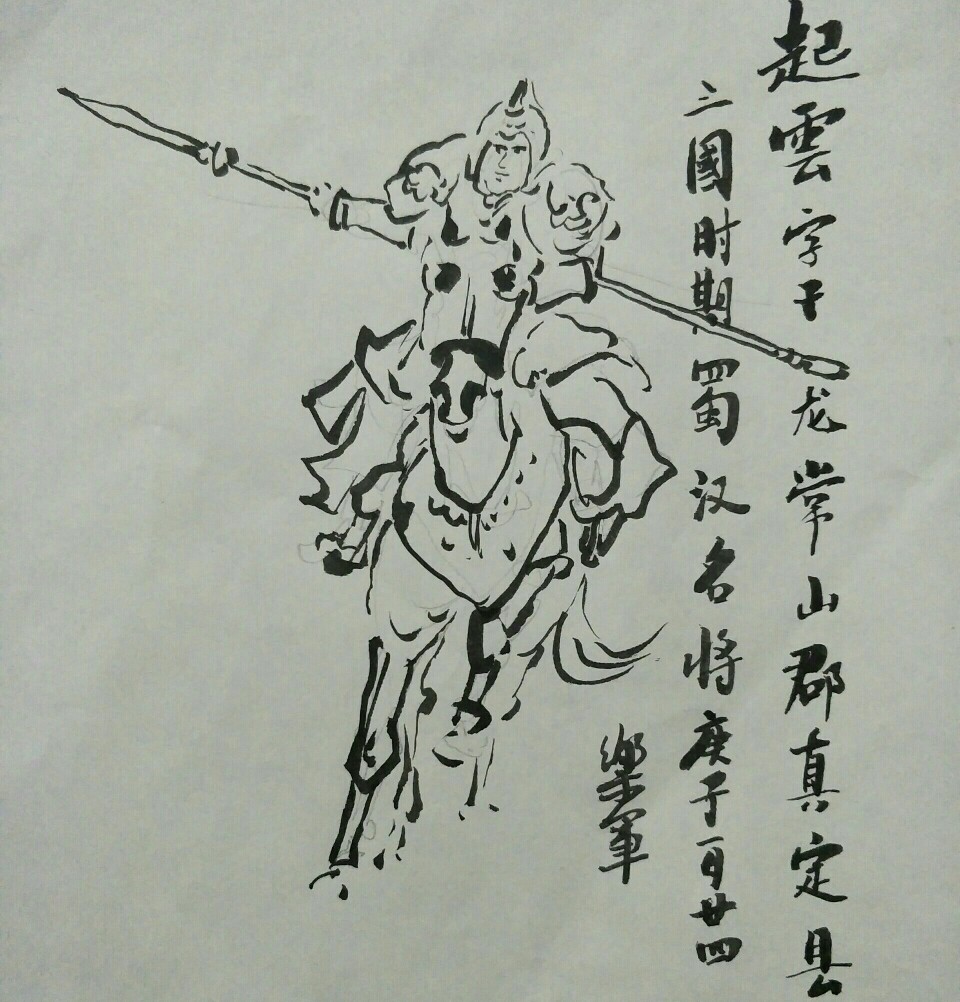 起雲字子龙常山郡真定县
三國时期蜀汉名将庚子一月廿四
樂軍